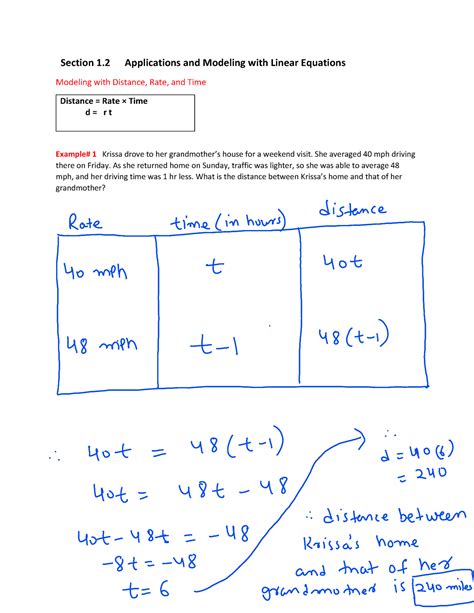 Section 1.2 Applications and Modeling with Linear Equations
Modeling with Distance, Rate, and Time
Distance = Rate × Time
d = r t
Example# 1 Krissa drove to her grandmother's house for a weekend visit. She averaged 40 mph driving
there on Friday. As she returned home on Sunday, traffic was lighter, so she was able to average 48
mph, and her driving time was 1 hr less. What is the distance between Krissa's home and that of her
grandmother?
Rate time (in hours) distance
40 mph t 40t
48 mph t-1 48(t-1)
∴ 40t = 48(t-1)
40t = 48t - 48
40t-48t = -48
-8t = -48
t=6
∴
d = 40(6)
= 240
∴ distance between
Krissa's home
and that of her
grandmother is 240 miles